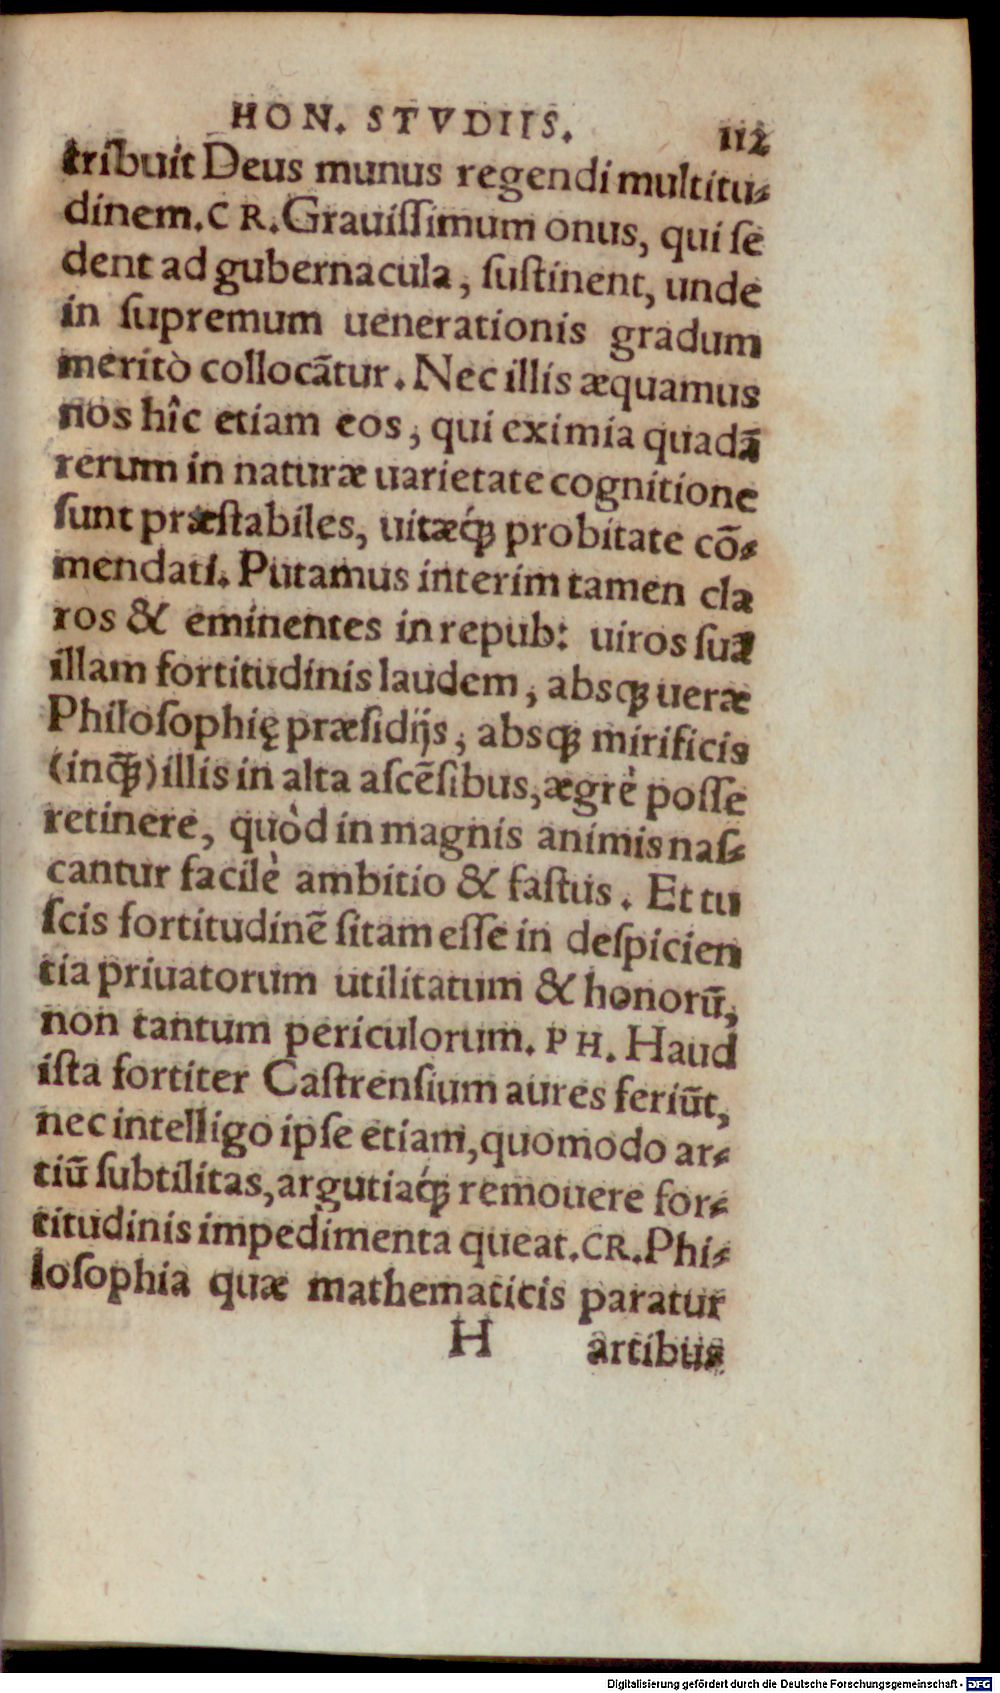 HON. STVDIIS. 112
tribuit Deus munus regendi multitu-
dinem. CR. Grauiſſimum onus, qui ſe
dent ad gubernacula, ſuſtinent, unde
in ſupremum uenerationis gradum
meritò collocãtur. Nec illis æquamus
nos hîc etiam eos, qui eximia quadã
rerum in naturæ uarietate cognitione
ſunt præſtabiles, uitæq́ꝫ probitate cõ-
mendati. Putamus interim tamen cla
ros & eminentes in repub: uiros ſuã
illam fortitudinis laudem, absqꝫ ueræ
Philoſophię præſidijs, absqꝫ mirificis
(inqꝫ̃) illis in alta aſcẽſibus, ægrè poſſe
retinere, quòd in magnis animis naſ-
cantur facilè ambitio & faſtus. Et tu
ſcis fortitudinẽ ſitam eſſe in deſpicien
tia priuatorum utilitatum & honorũ,
non tantum periculorum. PH. Haud
iſta fortiter Caſtrenſium aures feriũt,
nec intelligo ipſe etiam, quomodo ar-
tiũ ſubtilitas, argutiaq́ꝫ remouere for-
titudinis impedimenta queat. CR. Phi-
loſophia quæ mathematicis paratur
H artibus
Digitalisierung gefördert durch die Deutsche Forschungsgemeinschaft - DFG